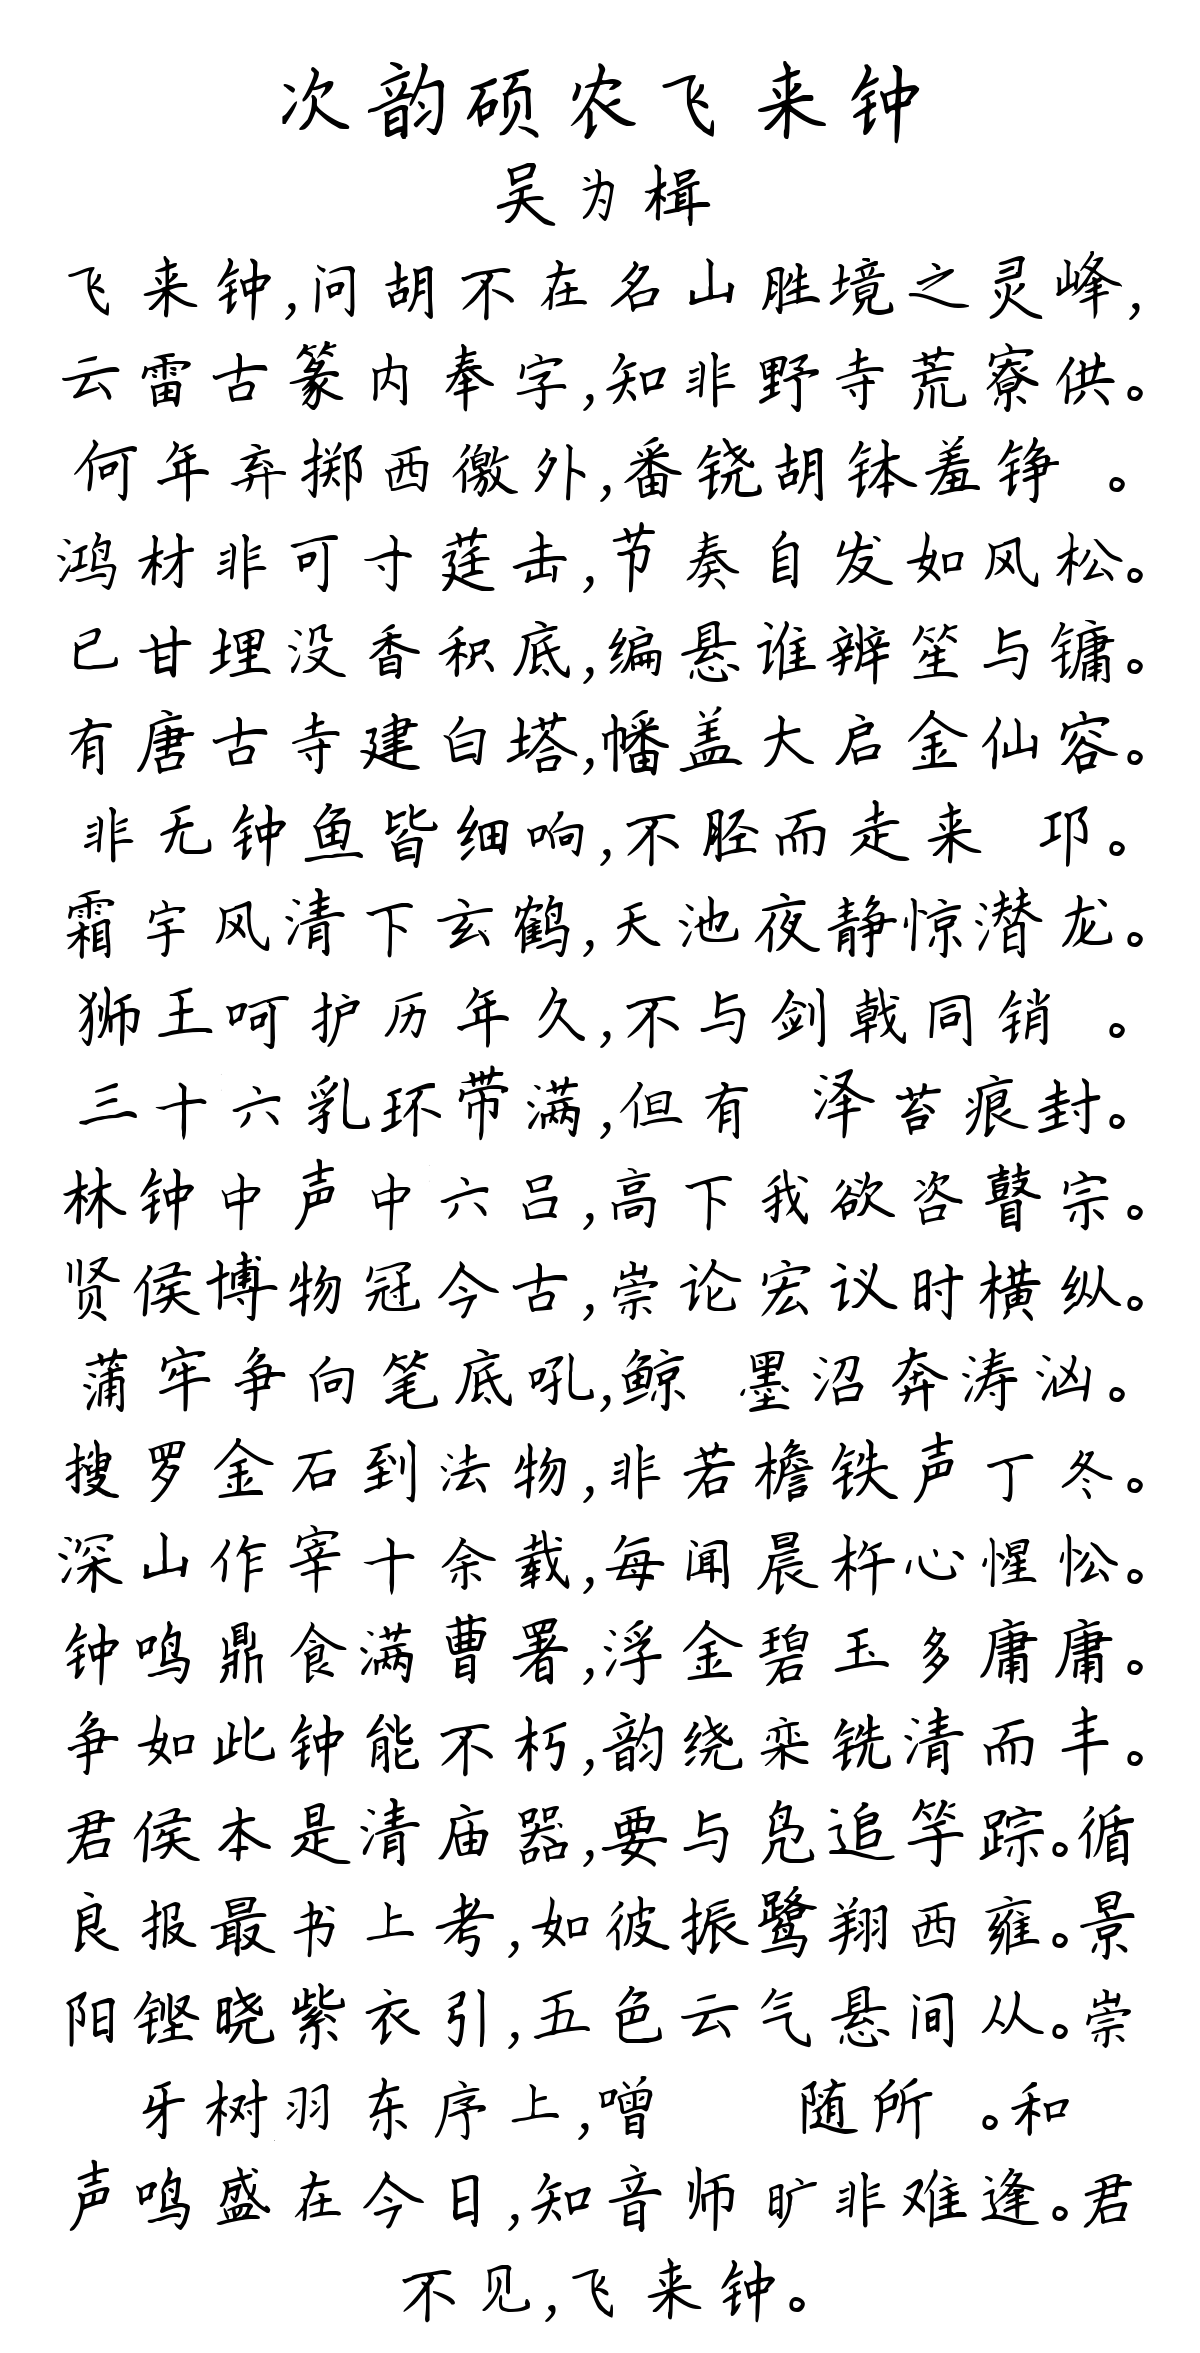 次韵硕农飞来钟
吴为楫
飞来钟,问胡不在名山胜境之灵峰,
云雷古篆内奉字,知非野寺荒寮供。
何年弃掷西徼外,番铙胡钵羞铮 。
鸿材非可寸莛击,节奏自发如风松。
已甘埋没香积底,编悬谁辨笙与镛。
有唐古寺建白塔,幡盖大启金仙容。
非无钟鱼皆细响,不胫而走来 邛。
霜宇风清下玄鹤,天池夜静惊潜龙。
狮王呵护历年久,不与剑戟同销 。
三十六乳环带满,但有 泽苔痕封。
林钟中声中六吕,高下我欲咨瞽宗。
贤侯博物冠今古,崇论宏议时横纵。
蒲牢争向笔底吼,鲸 墨沼奔涛汹。
搜罗金石到法物,非若檐铁声丁冬。
深山作宰十余载,每闻晨杵心惺忪。
钟鸣鼎食满曹署,浮金碧玉多庸庸。
争如此钟能不朽,韵绕栾铣清而丰。
君侯本是清庙器,要与凫追竽踪。循
良报最书上考,如彼振鹭翔西雍。景
阳铿晓紫衣引,五色云气悬间从。崇
牙树羽东序上,噌 随所 。和
声鸣盛在今日,知音师旷非难逢。君
不见,飞来钟。